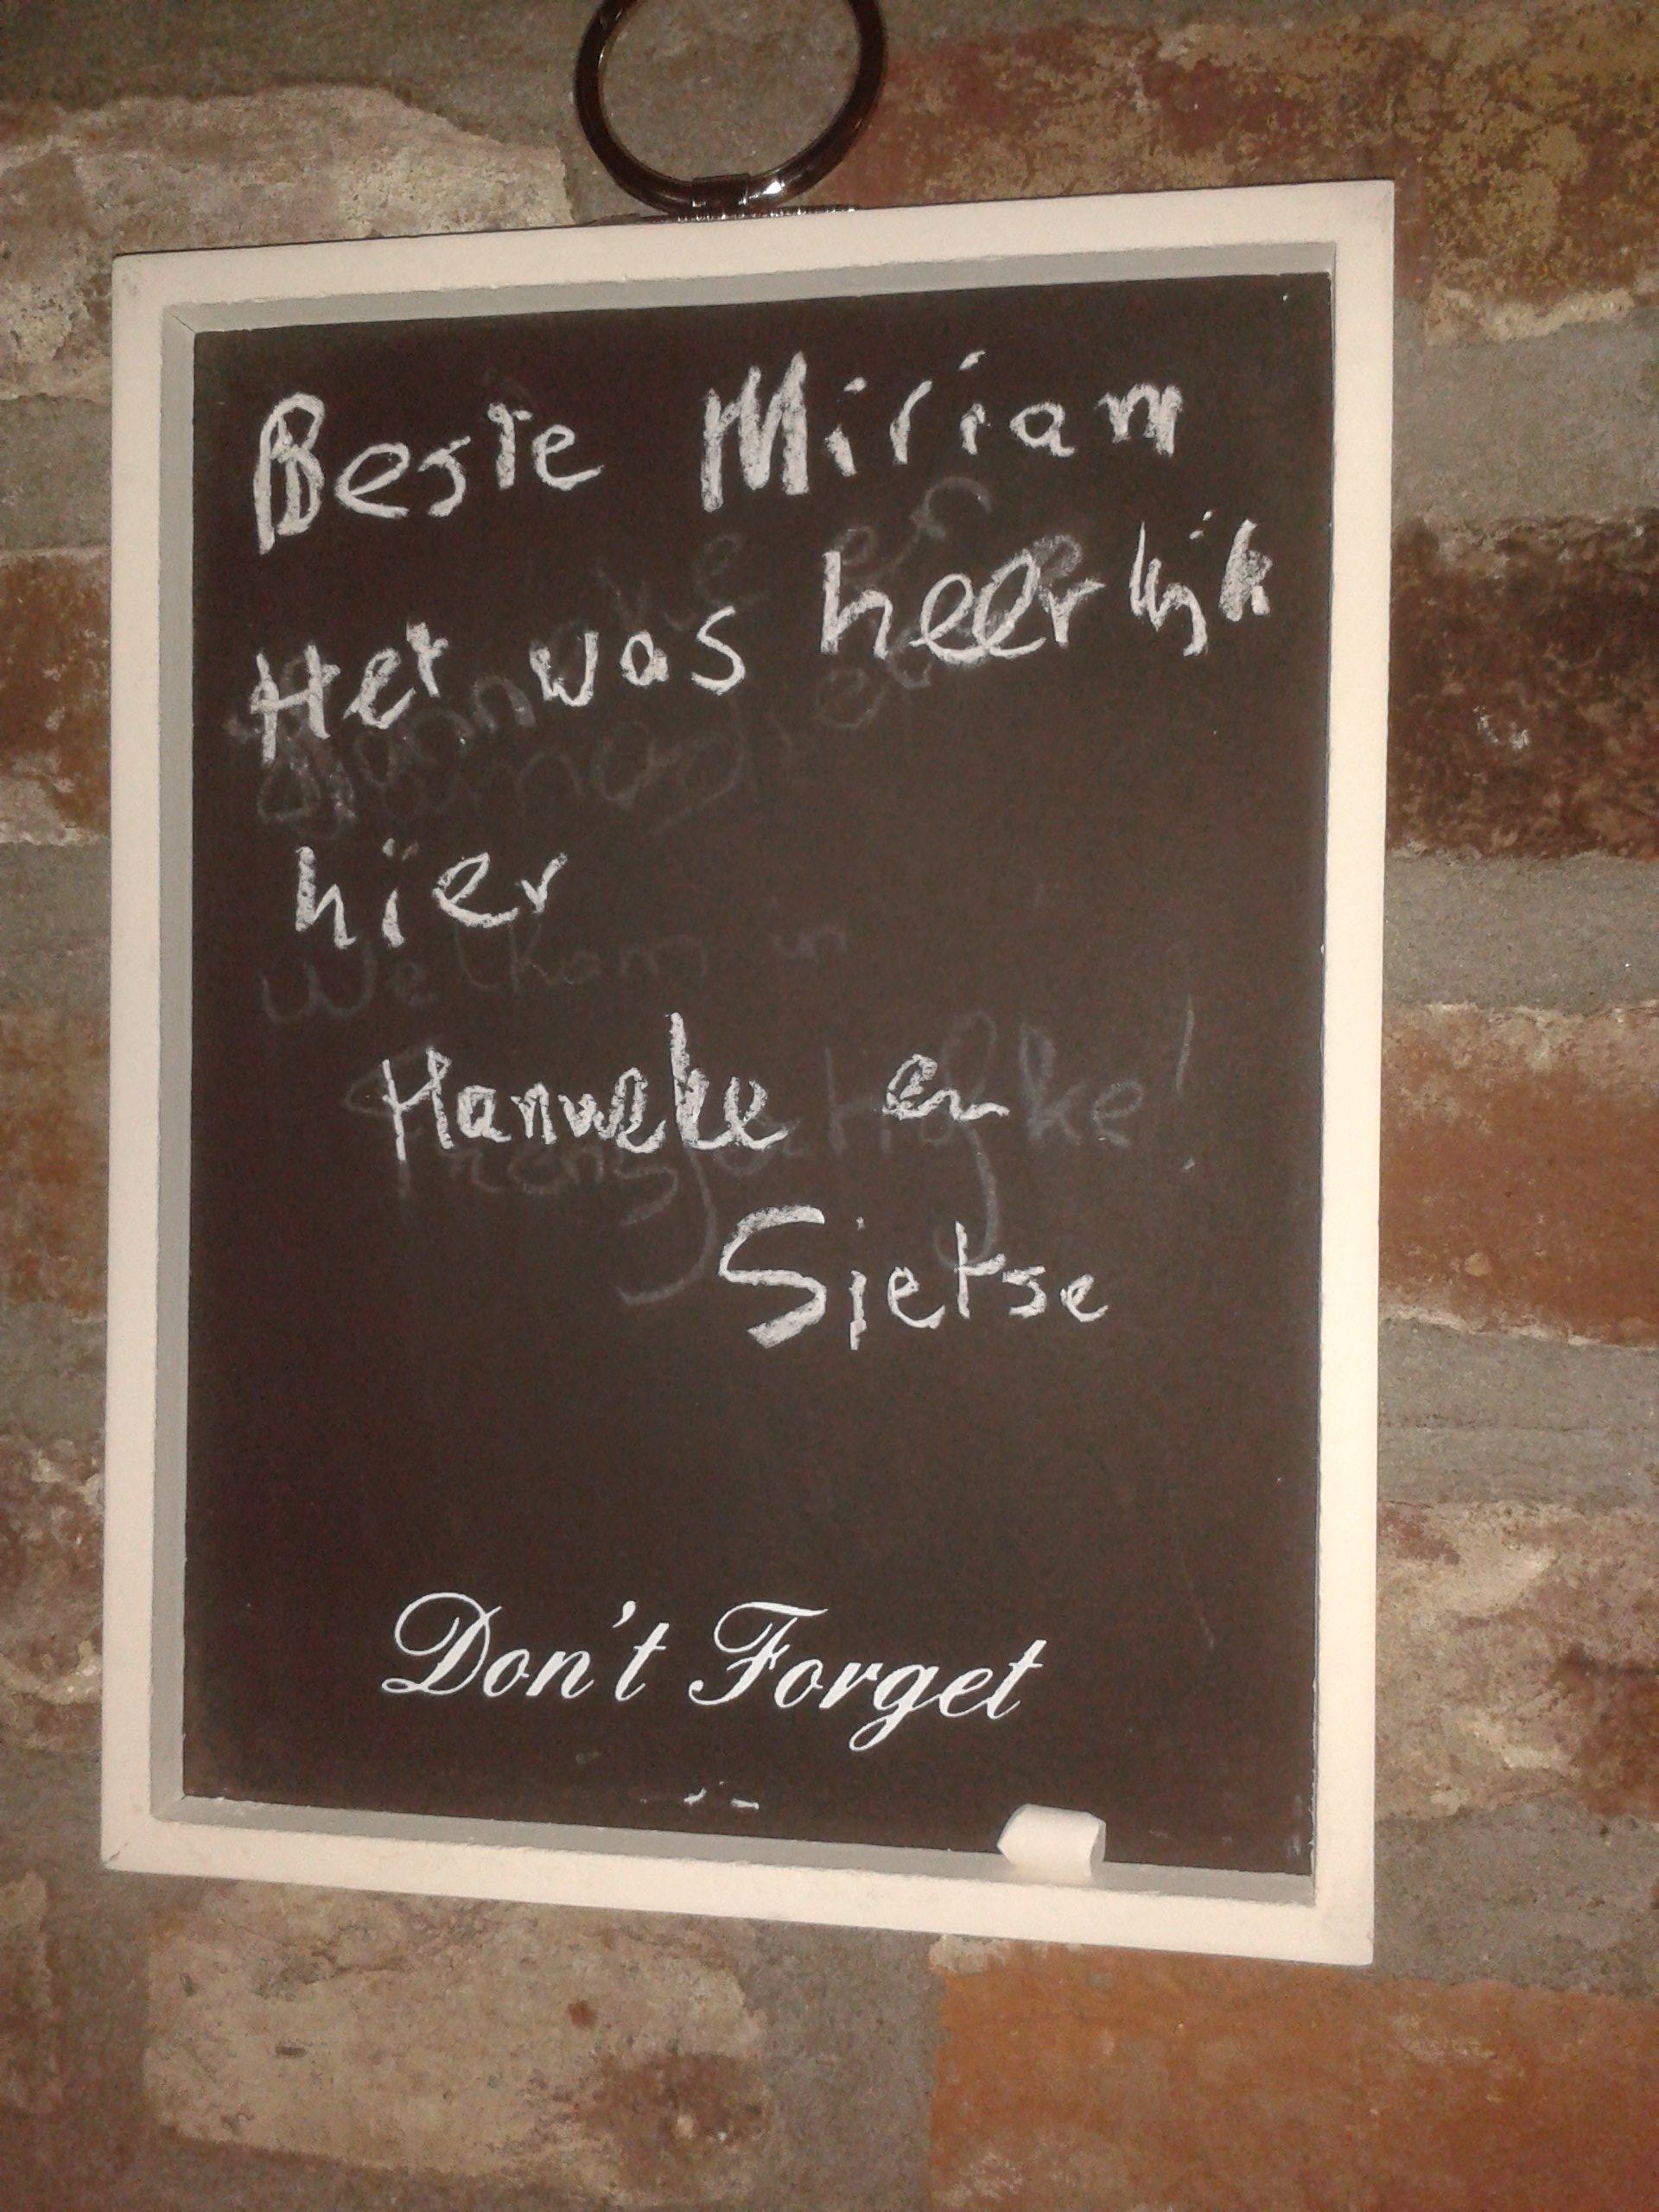 Beste Miriam
Het was heerlijk
hier
Welkom in
Hanneke en
Sietse
Don't Forget